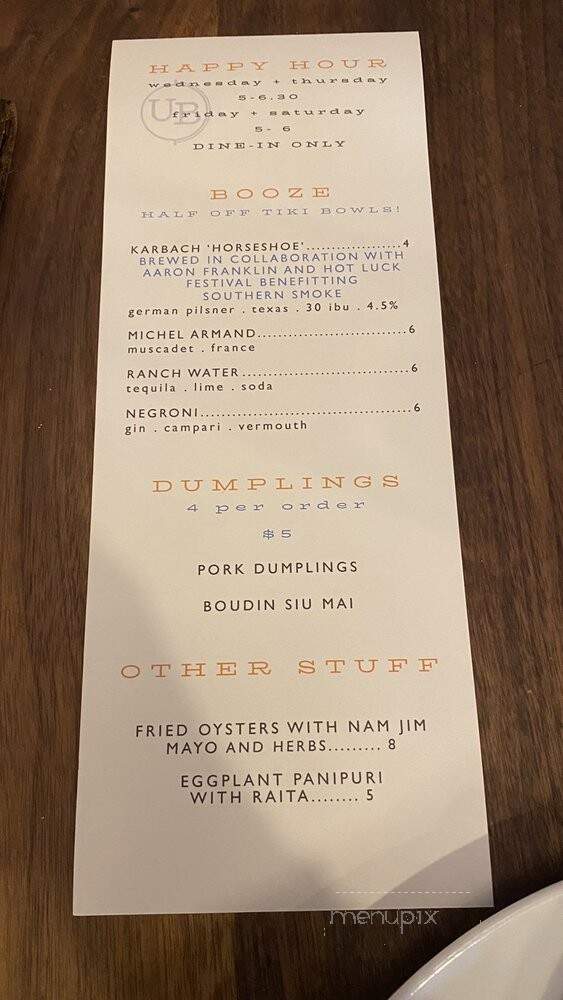 HAPPY HOUR
wednesday + thursday
5-6.30
UB
friday + saturday
5- 6
DINE-IN ONLY
BOOZE
HALF OFF TIKI BOWLS!
KARBACH 'HORSESHOE'..................4
BREWED IN COLLABORATION WITH
AARON FRANKLIN AND HOT LUCK
FESTIVAL BENEFITTING
SOUTHERN SMOKE
german pilsner . texas . 30 ibu . 4.5%
MICHEL ARMAND............................6
muscadet . france
RANCH WATER................................6
tequila . lime . soda
NEGRONI........................................6
gin . campari . vermouth
DUMPLINGS
4 per order
$5
PORK DUMPLINGS
BOUDIN SIU MAI
OTHER STUFF
FRIED OYSTERS WITH NAM JIM
MAYO AND HERBS......... 8
EGGPLANT PANIPURI
WITH RAITA........ 5
menupix